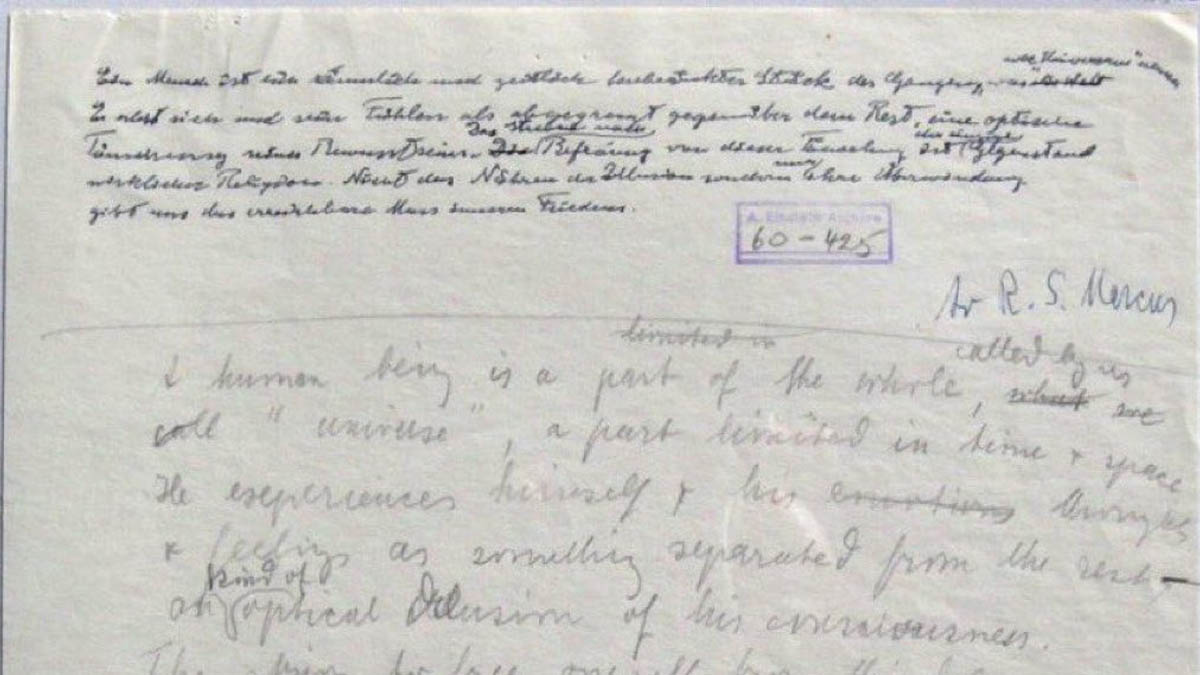 das "Universum" nennen
Ein Mensch ist ein räumlich und zeitlich beschränktes Stück des Ganzen,
Er erlebt sich und sein Fühlen als abgegrenzt gegenüber dem Rest, eine optische
Das Streben nach
Täuschung seines Bewusstseins. Die Befreiung von dieser Täuschung ist Gegenstand
wirklicher Religion. Nicht das Nähren der Illusion sondern nur ihre Überwindung
gibt uns das erreichbare Mass inneren Friedens.
A. Einstein Archive
60-425
to R. S. Marcus
limited in
called by us
A human being is a part of the whole, what we
call "universe", a part limited in time + space
He experiences himself + his emotions thoughts
+ feelings as something separated from the rest-
kind of
an optical delusion of his consciousness.
The